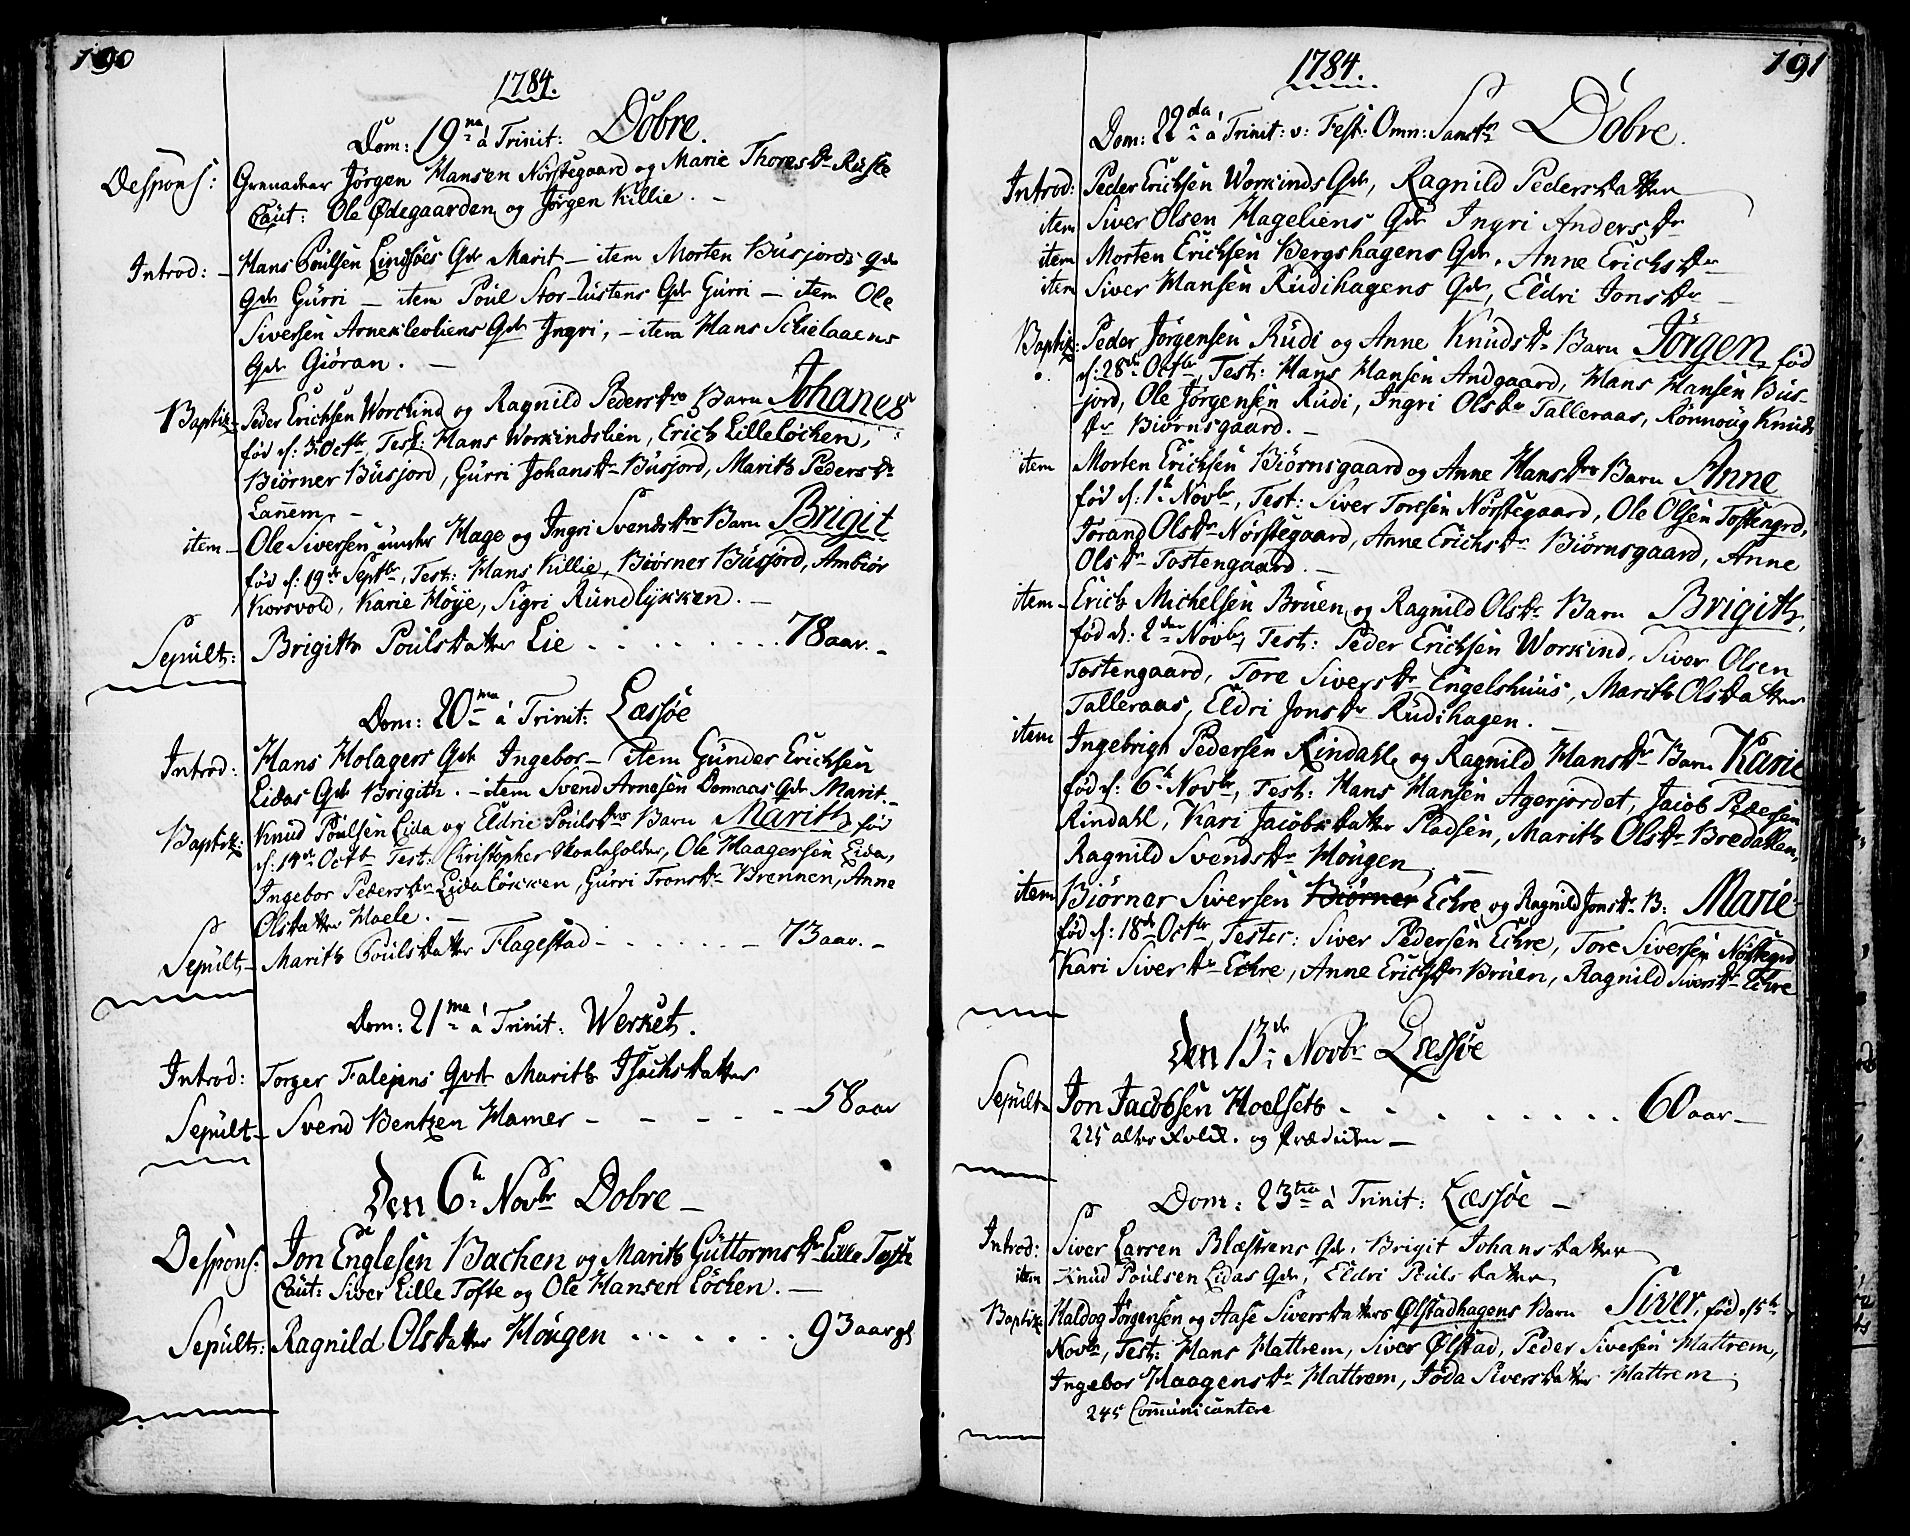 190
1784.
Dom: 19na á Trinit: Dobre.
Despons: Grenadeer Jørgen Hansen Nørstegaard og Marie Thoresdr Ruste
Caut: Ole Ødegaarden og Jørgen Killie. –
Introd: – Hans Poulsen Lindsøes Qde Marit – item Morten Busjords Qde
Qde Gurri – item Poul Stor-lustens Qde Gurri – item Ole
Siversen Arnekleoliens Qde Ingri, – item Hans Schielaaens
Qde Giøran. –
Baptiz – Peder Erichsen Workind og Ragnild Pedersdrs Barn Johanes
fød d: 3 Octbr, Test: Hans Workindslien, Erich Lilleløchen,
Biørner Busjord, Gurri Johansdr Busjord, Marith Pedersdr
Lanem, –
item – Ole Siversen under Hage og Ingri Svendsdrs Barn Brigit
fød d: 19de Septbr, Test: Hans Killie, Biørner Busjord, Ambiør
Korsvold, Karie Høÿe, Sigri Rundlykken. –
Sepult: Brigith Poulsdatter Lie . . . . . . . . 78 aar. –
Dom: 20ma á Trinit: Læssøe
Introd: Hans Holagers Qde Ingebor – item Gunder Erichsen
Lidas Qde Brigith. – item Svend Arnesen Domaas Qde Marit. –
Baptiz: Knud Poulsen Lida og Eldrie Poulsdrs Barn Marith fød
d: 14de Octb Test: Christopher Skouleholder, Ole Haagensen Lida,
Ingebor Pedersdr Lidaløkken, Gurri Tronsdr Brennen, Anne
Olsdatter Hoele. –
Sepult – Marith Poulsdatter Flagestad – . . . . . – 73 aar. –
Dom: 21ma á Trinit: Werket.
Introd: Torger Falejens Qvde Marith Isachsdatter
Sepult – Svend Bentzen Hamer – – – – – 58 aar
Den 6te Novbr Dobre –
Despons: Jon Englesen Bachen og Marith Guttormsdr Lille Tofte
Caut: Siver Lille Tofte og Ole Hansen Løchen. –
Sepult: Ragnild Olsdatter Hougen . . . . . . . 93 aar gl
191
1784.
Dom: 22da á Trinit: v: Fest: Omn: Sanct: Dobre.
Introd: Peder Erichsen Workinds Qde, Ragnild Pedersdatter
item Siver Olsen Hageliens Qde Ingri Andersdr
item Morten Erichsen Bergshagens Qde. Anne Erichsdr
item Siver Hansen Rudihagens Qde, Eldri Jonsdr –
Baptiz: Peder Jørgensen Rudi og Anne Knudsdr Barn Jørgen fød
d: 28de Octbr, Test: Hans Hansen Andgaard, Hans Hansen Bus-
jord, Ole Jørgensen Rudi, Ingri Olsdr Talleraas, Rønnoug Knuds
dr Biørnsgaard. –
item Morten Erichsen Biørnsgaard og Anne Hansdrs Barn Anne
fød d: 1te Novbr, Test: Siver Toresen Nørstegaard, Ole Olsen Tostengrd,
Jorang Olsdr Nørstegaard, Anne Erichsdr Biørnsgaard, Anne
Olsdr Tostengaard. –
item – Erich Michelsen Bruen og Ragnild Olsdr Barn Brigith,
fød d: 2den Novbr, Test: Peder Erichsen Workind, Siver Olsen
Tostengaard, Tore Siversdr Engelshuus, Marith Olsdatter
Talleraas, Eldri Jonsdr Rudihagen. –
item Ingebrigt Pedersen Rindahl og Ragnild Hansdr Barn Karie
fød d: 6te Novbr, Test: Hans Hansen Agerjordet, Jacob Pedersen
Rindahl, Kari Jacobsdatter Pladsen, Marith Olsdr Bredahlen,
Ragnild Svendsdr Hougen, –
item Biørner Siversen Biørner Echre og Ragnild Jonsdr B: Marie
fød d: 18de Octbr, Testes: Siver Pedersen Echre, Tore Siversen Nørstegrd
Kari Siversdr Echre, Anne Erichsdr Bruen, Ragnild Siversdr Echre
Den 13de Novbr Læssøe
Sepult – Jon Jacobsen Hoelseth . . . . . . . . . . 60 aar –
225 alter Folck. og Prædicken –
Dom: 23tia á Trinit: Læssøe –
Introd: Siver Larsen Blæstrens Qde. Brigit Johansdatter
item Knud Poulsen Lidas Qde, Eldri Poulsdatter
Baptiz Haldog Jørgensen og Aase Siversdatters Ølstadhagens Barn Siver, fød d 5te
Novbr, Test: Hans Hattrem, Siver Ølstad, Peder Siversen Hattrem,
Ingebor Haagensdr Hattrem, Jøda Siversdatter Hattrem
245 Communicantere